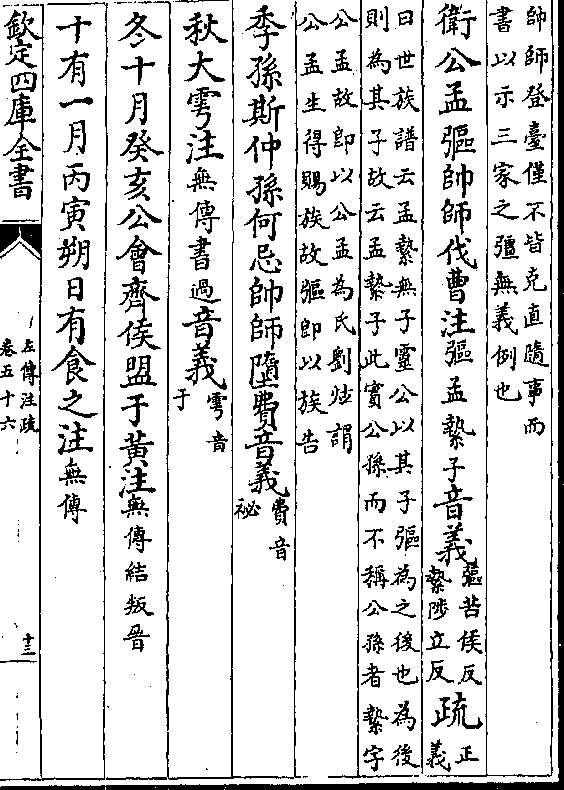 帥師登臺僅不皆克直隨事而
書以示三家之彊無義例也
衛公孟彄帥師伐曹注彄孟縶子音義彄苦侯反縶陟立反疏正義
曰世族譜云孟縶無子靈公以其子彄為之後也為後
則為其子故云孟縶子此實公孫而不稱公孫者縶字
公孟故即以公孟為氏劉炫謂
公孟生得賜族故彄即以族告
季孫斯仲孫何忌帥師墮費音義費音祕
秋大雩注無傳書過音義雩音于
冬十月癸亥公會齊侯盟于黃注無傳結叛晉
十有一月丙寅朔日有食之注無傳
欽定四庫全書
左傳注疏
卷五十六
十三